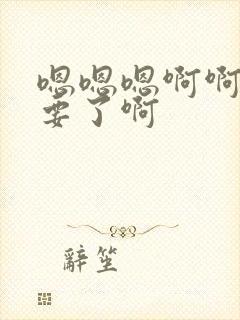 嗯嗯嗯啊啊
要了啊
辭笙